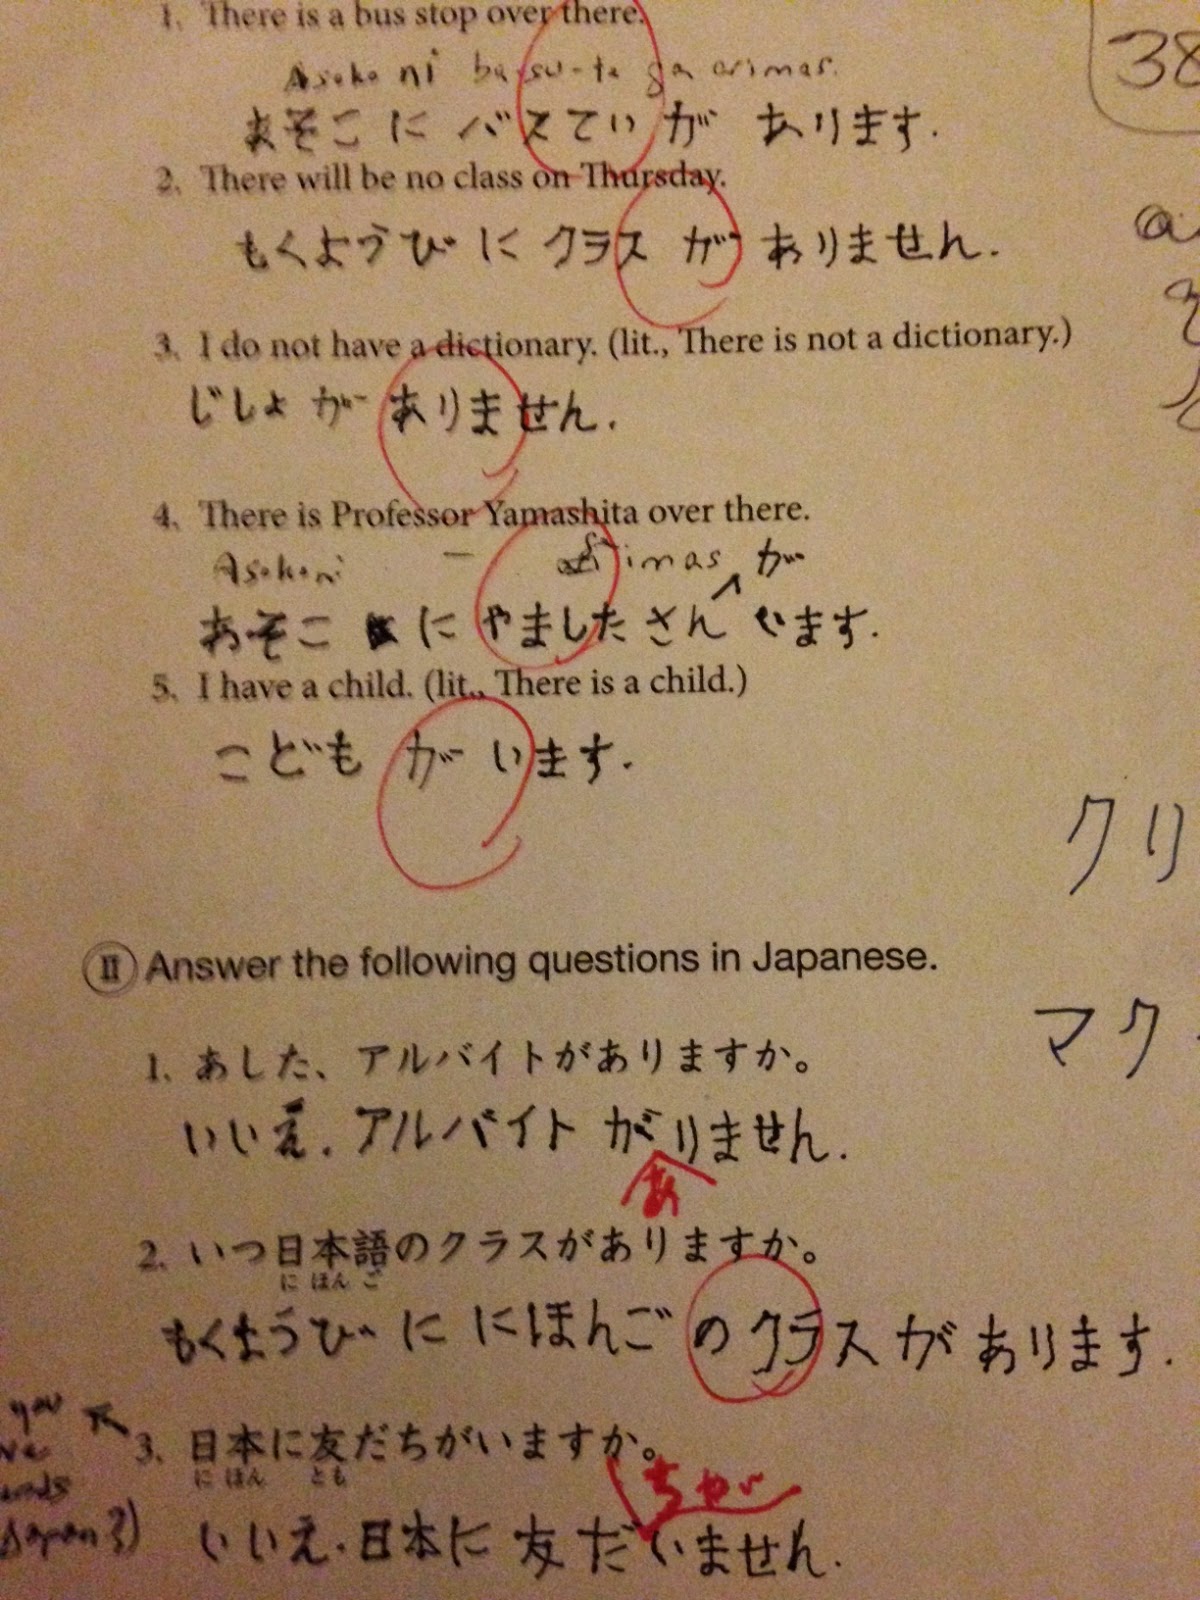 1. There is a bus stop over there.
38
Asoko ni ba-su-te ga arimas.
あそこ に バスてい が あります.
2. There will be no class on Thursday.
もくようび に クラス が ありません.
3. I do not have a dictionary. (lit., There is not a dictionary.)
じしょ が ありません.
4. There is Professor Yamashita over there.
Asokoni imas が
あそこ に やましたさん います.
5. I have a child. (lit., There is a child.)
こども が います.
クリ
II Answer the following questions in Japanese.
マク
1. あした、アルバイトがありますか。
いいえ. アルバイト がりません.
あ
2. いつ日本語のクラスがありますか。
に ほん ご
もくようび に にほんご のクラス が あります.
you
3. 日本に友だちがいますか。
に ほん とも
ちが
Japan?)
いいえ. 日本に 友だいません.